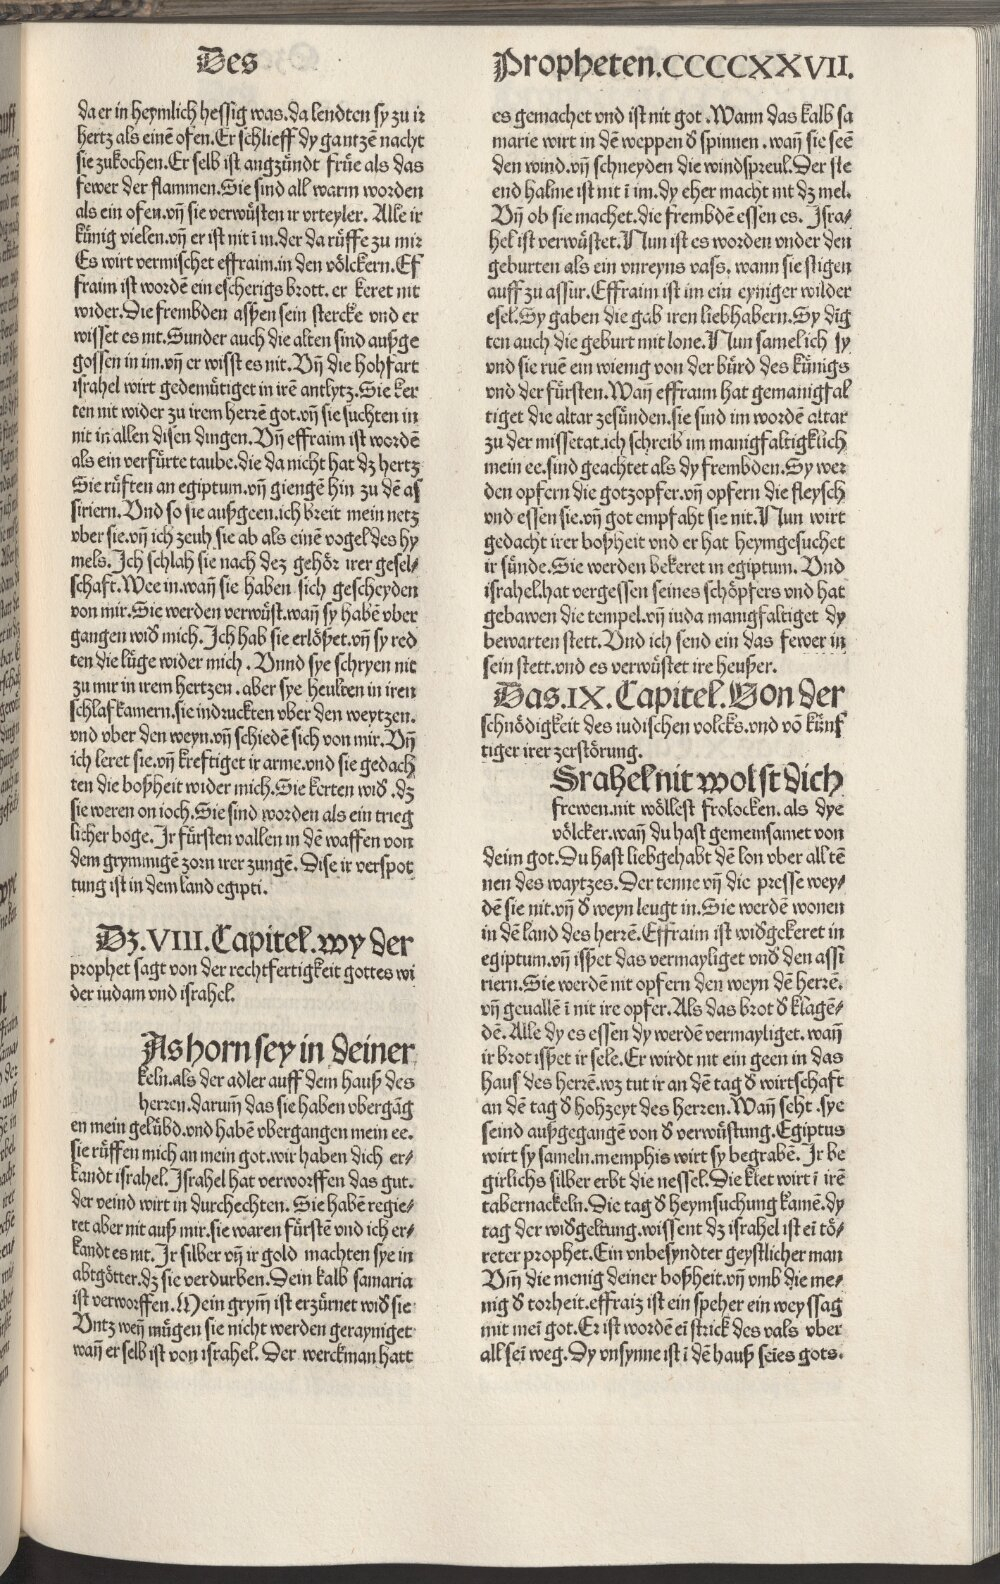 Des
Propheten.CCCCXXVII.
da er in heymlich hessig was.da lendten sy zu ir
hertz als einē ofen.Er schlieff dy gantzē nacht
sie zukochen.Er selb ist angzündt früe als das
fewer der flammen.Sie sind all warm worden
als ein ofen.vñ sie verwůsten ir vrteyler. Alle ir
künig vielen.vñ er ist nit ī im.der da růffe zu mir
Es wirt vermischet effraim.in den völckern.Ef
fraim ist wordē ein escherigs brott. er keret nit
wider.Die frembden assen sein stercke vnd er
wisset es nit.Sunder auch die alten sind außge
gossen in im.vñ er wisst es nit.Vñ die hohfart
israhel wirt gedemütiget in irē antlytz.Sie ker
ten nit wider zu irem herrē got.vñ sie suchten in
nit in allen disen dingen.Vñ effraim ist wordē
als ein verfürte taube.die da nicht hat dz hertz
Sie růften an egiptum.vñ giengē hin zu dē as
siriern.Vnd so sie außgeen.ich breit mein netz
vber sie.vñ ich zeuh sie ab als einē vogel des hy
mels.Ich schlah sie nach dez gehör irer gesel⸗
schaft.Wee in.wañ sie haben sich gescheyden
von mir.Sie werden verwůst.wañ sy habē vber
gangen wiđ mich.Ich hab sie erlößet.vñ sy red
ten die lüge wider mich. Vnnd sye schryen nit
zu mir in irem hertzen.aber sye heulten in iren
schlafkamern.sie indruckten vber den weytzen.
vnd vber den weyn.vñ schiedē sich von mir.Vñ
ich leret sie.vñ kreftiget ir arme.vnd sie gedach
ten die boßheit wider mich.Sie kerten wiđ.dz
sie weren on ioch.Sie sind worden als ein trieg
licher boge.Ir fürsten vallen in dē waffen von
dem grymmigē zorn irer zungē. Dise ir verspot
tung ist in dem land egipti.
Dz.VIII.Capitel.wy der
prophet sagt von der rechtfertigkeit gottes wi
der iudam vnd israhel.
As horn sey in deiner
keln.als der adler auff dem hauß des
herren.darum̄ das sie haben vbergāg
en mein gelübd.vnd habē vbergangen mein ee.
sie růffen mich an mein got.wir haben dich er⸗
kandt israhel.Israhel hat verworffen das gut.
der veind wirt in durchechten. Sie habē regie⸗
ret aber nit auß mir.sie waren fürstē vnd ich er⸗
kandt es nit.Ir silber vñ ir gold machten sye in
abtgötter.dz sie verdurben.Dein kalb samaria
ist verworffen.Mein grym̄ ist erzürnet wiđ sie
Vntz weñ mügen sie nicht werden gerayniget
wañ er selb ist von israhel. Der werckman hatt
es gemachet vnd ist nit got.Wann das kalb sa
marie wirt in dē weppen đ spinnen.wañ sie seē
den wind.vñ schneyden die windspreul.Der ste
end halme ist nit ī im.dy eher macht nit dz mel.
Vñ ob sie machet.die frembdē essen es. Isra⸗
hel ist verwůstet.Nun ist es worden vnder den
geburten als ein vnreyns vass. wann sie stigen
auff zu assur.Effraim ist im ein eyniger wilder
esel.Sy gaben die gab iren liebhabern.Sy dig
ten auch die geburt mit lone.Nun samel ich sy
vnd sie ruē ein wienig von der bürd des künigs
vnd der fürsten.Wañ effraim hat gemanigfal
tiget die altar zesünden.sie sind im wordē altar
zu der missetat.ich schreib im manigfaltigklich
mein ee.sind geachtet als dy frembden.Sy wer
den opfern die gotzopfer.vñ opfern die fleysch
vnd essen sie.vñ got empfaht sie nit.Nun wirt
gedacht irer boßheit vnd er hat heymgesuchet
ir sünde.Sie werden bekeret in egiptum. Vnd
israhel.hat vergessen seines schöpfers vnd hat
gebawen die tempel.vñ iuda manigfaltiget dy
bewarten stett.Vnd ich send ein das fewer in
sein stett.vnd es verwůstet ire heußer.
Das.IX.Capitel.Von der
schnödigkeit des iudischen volcks.vnd vō künf
tiger irer zerstörung.
Srahel nit wolst dich
frewen.nit wöllest frolocken.als dye
völcker.wañ du hast gemeinsamet von
deim got.Du hast liebgehabt dē lon vber all tē
nen des waytzes.Der tenne vñ die presse wey⸗
dē sie nit.vñ đ weyn leugt in.Sie werdē wonen
in dē land des herrē.Effraim ist wiđgekeret in
egiptum.vñ isßet das vermayliget vnđ den assi
riern.Sie werdē nit opfern den weyn dē herrē.
vñ geuallē ī nit ire opfer.Als das brot đ klagē⸗
dē.Alle dy es essen dy werdē vermayliget.wañ
ir brot isßet ir sele.Er wirdt nit ein geen in das
haus des herrē.wz tut ir an dē tag đ wirtschaft
an dē tag đ hohzeyt des herren.Wañ seht.sye
seind außgegangē von đ verwůstung.Egiptus
wirt sy sameln.memphis wirt sy begrabē. Ir be
girlichs silber erbt die nessel.Die klet wirt ī irē
tabernackeln.Die tag đ heymsuchung kamē.dy
tag der wiđgeltung.wissent dz israhel ist eī tö⸗
reter prophet.Ein vnbesyndter geystlicher man
Vm̄ die menig deiner boßheit.vñ vmb die me⸗
nig đ torheit.effraiz ist ein speher ein weyssag
mit meī got.Er ist wordē eī strick des vals vber
all seī weg.Dy vnsynne ist ī dē hauß seīes gots.